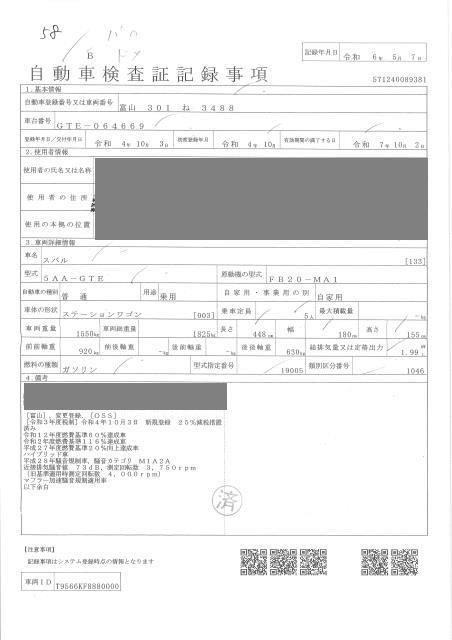 58
B
自動車検査証記録事項
記録年月日 令和 6年 5月 7日
571240089381
1.基本情報
自動車登録番号又は車両番号 富山 301 ね 3488
車台番号 GTE-064669
登録年月日/交付年月日 令和 4年 10月 3日 初度登録年月 令和 4年 10月 有効期間の満了する日 令和 7年 10月 2日
2.使用者情報
使用者の氏名又は名称
使用者の住所
使用の本拠の位置
3.車両詳細情報
車名 スバル [133]
型式 5AA-GTE 原動機の型式 FB20-MA1
自動車の種別 普通 用途 乗用 自家用・事業用の別 自家用
車体の形状 ステーションワゴン [003] 乗車定員 5人 最大積載量 -kg
車両重量 1550kg 車両総重量 1825kg 長さ 448cm 幅 180cm 高さ 155cm
前前軸重 920kg 前後軸重 -kg 後前軸重 -kg 後後軸重 630kg 総排気量又は定格出力 1.99
燃料の種類 ガソリン 型式指定番号 19005 類別区分番号 1046
4.備考
[富山],変更登録,[OSS]
[令和3年度税制]令和4年10月3日 新規登録 25%減税措置
済み
令和12年度燃費基準60%達成車
令和2年度燃費基準116%達成車
平成27年度燃費基準20%向上達成車
ハイブリッド車
平成28年騒音規制車,騒音カテゴリ M1A2A
近接排気騒音値 73dB,測定回転数 3,750rpm
[旧基準適用時測定回転数 4,000rpm]
マフラー加速騒音規制適用車
以下余白
済
【注意事項】
記録事項はシステム登録時点の情報となります
車両ID T9566KF8880000